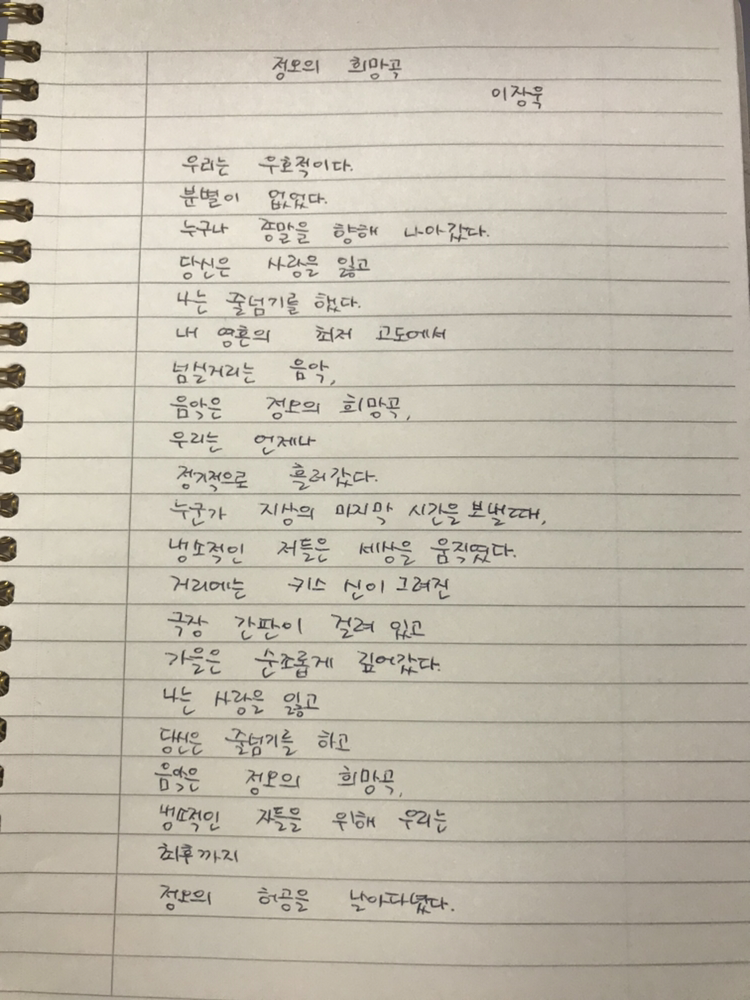 정오의 희망곡
이장욱
우리는 우호적이다.
분별이 없었다.
누구나 종말을 향해 나아갔다.
당신은 사랑을 잃고
나는 줄넘기를 했다.
내 영혼의 최저 고도에서
넘실거리는 음악,
음악은 정오의 희망곡,
우리는 언제나
정기적으로 흘러갔다.
누군가 지상의 마지막 시간을 보낼때,
냉소적인 저들은 세상을 움직였다.
거리에는 키스 신이 그려진
극장 간판이 걸려 있고
가을은 순조롭게 깊어갔다.
나는 사랑을 잃고
당신은 줄넘기를 하고
음악은 정오의 희망곡,
냉소적인 자들을 위해 우리는
최후까지
정오의 허공을 날아다녔다.